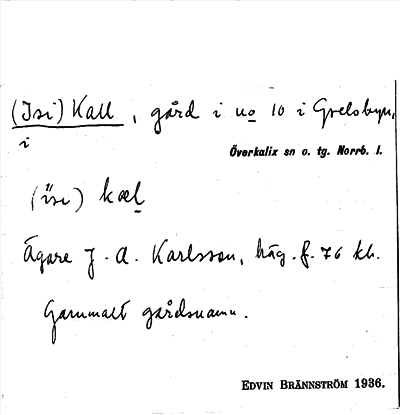 (Isi) Kall, gård i no 10 i Grelsbyn,
i
Överkalix sn o. tg. Norrb. l.
(i̋si) kæl
Ägare J. A. Karlsson, häg. f. 76 kh.
Gammalt gårdsnamn.
EDVIN BRÄNNSTRÖM 1936.